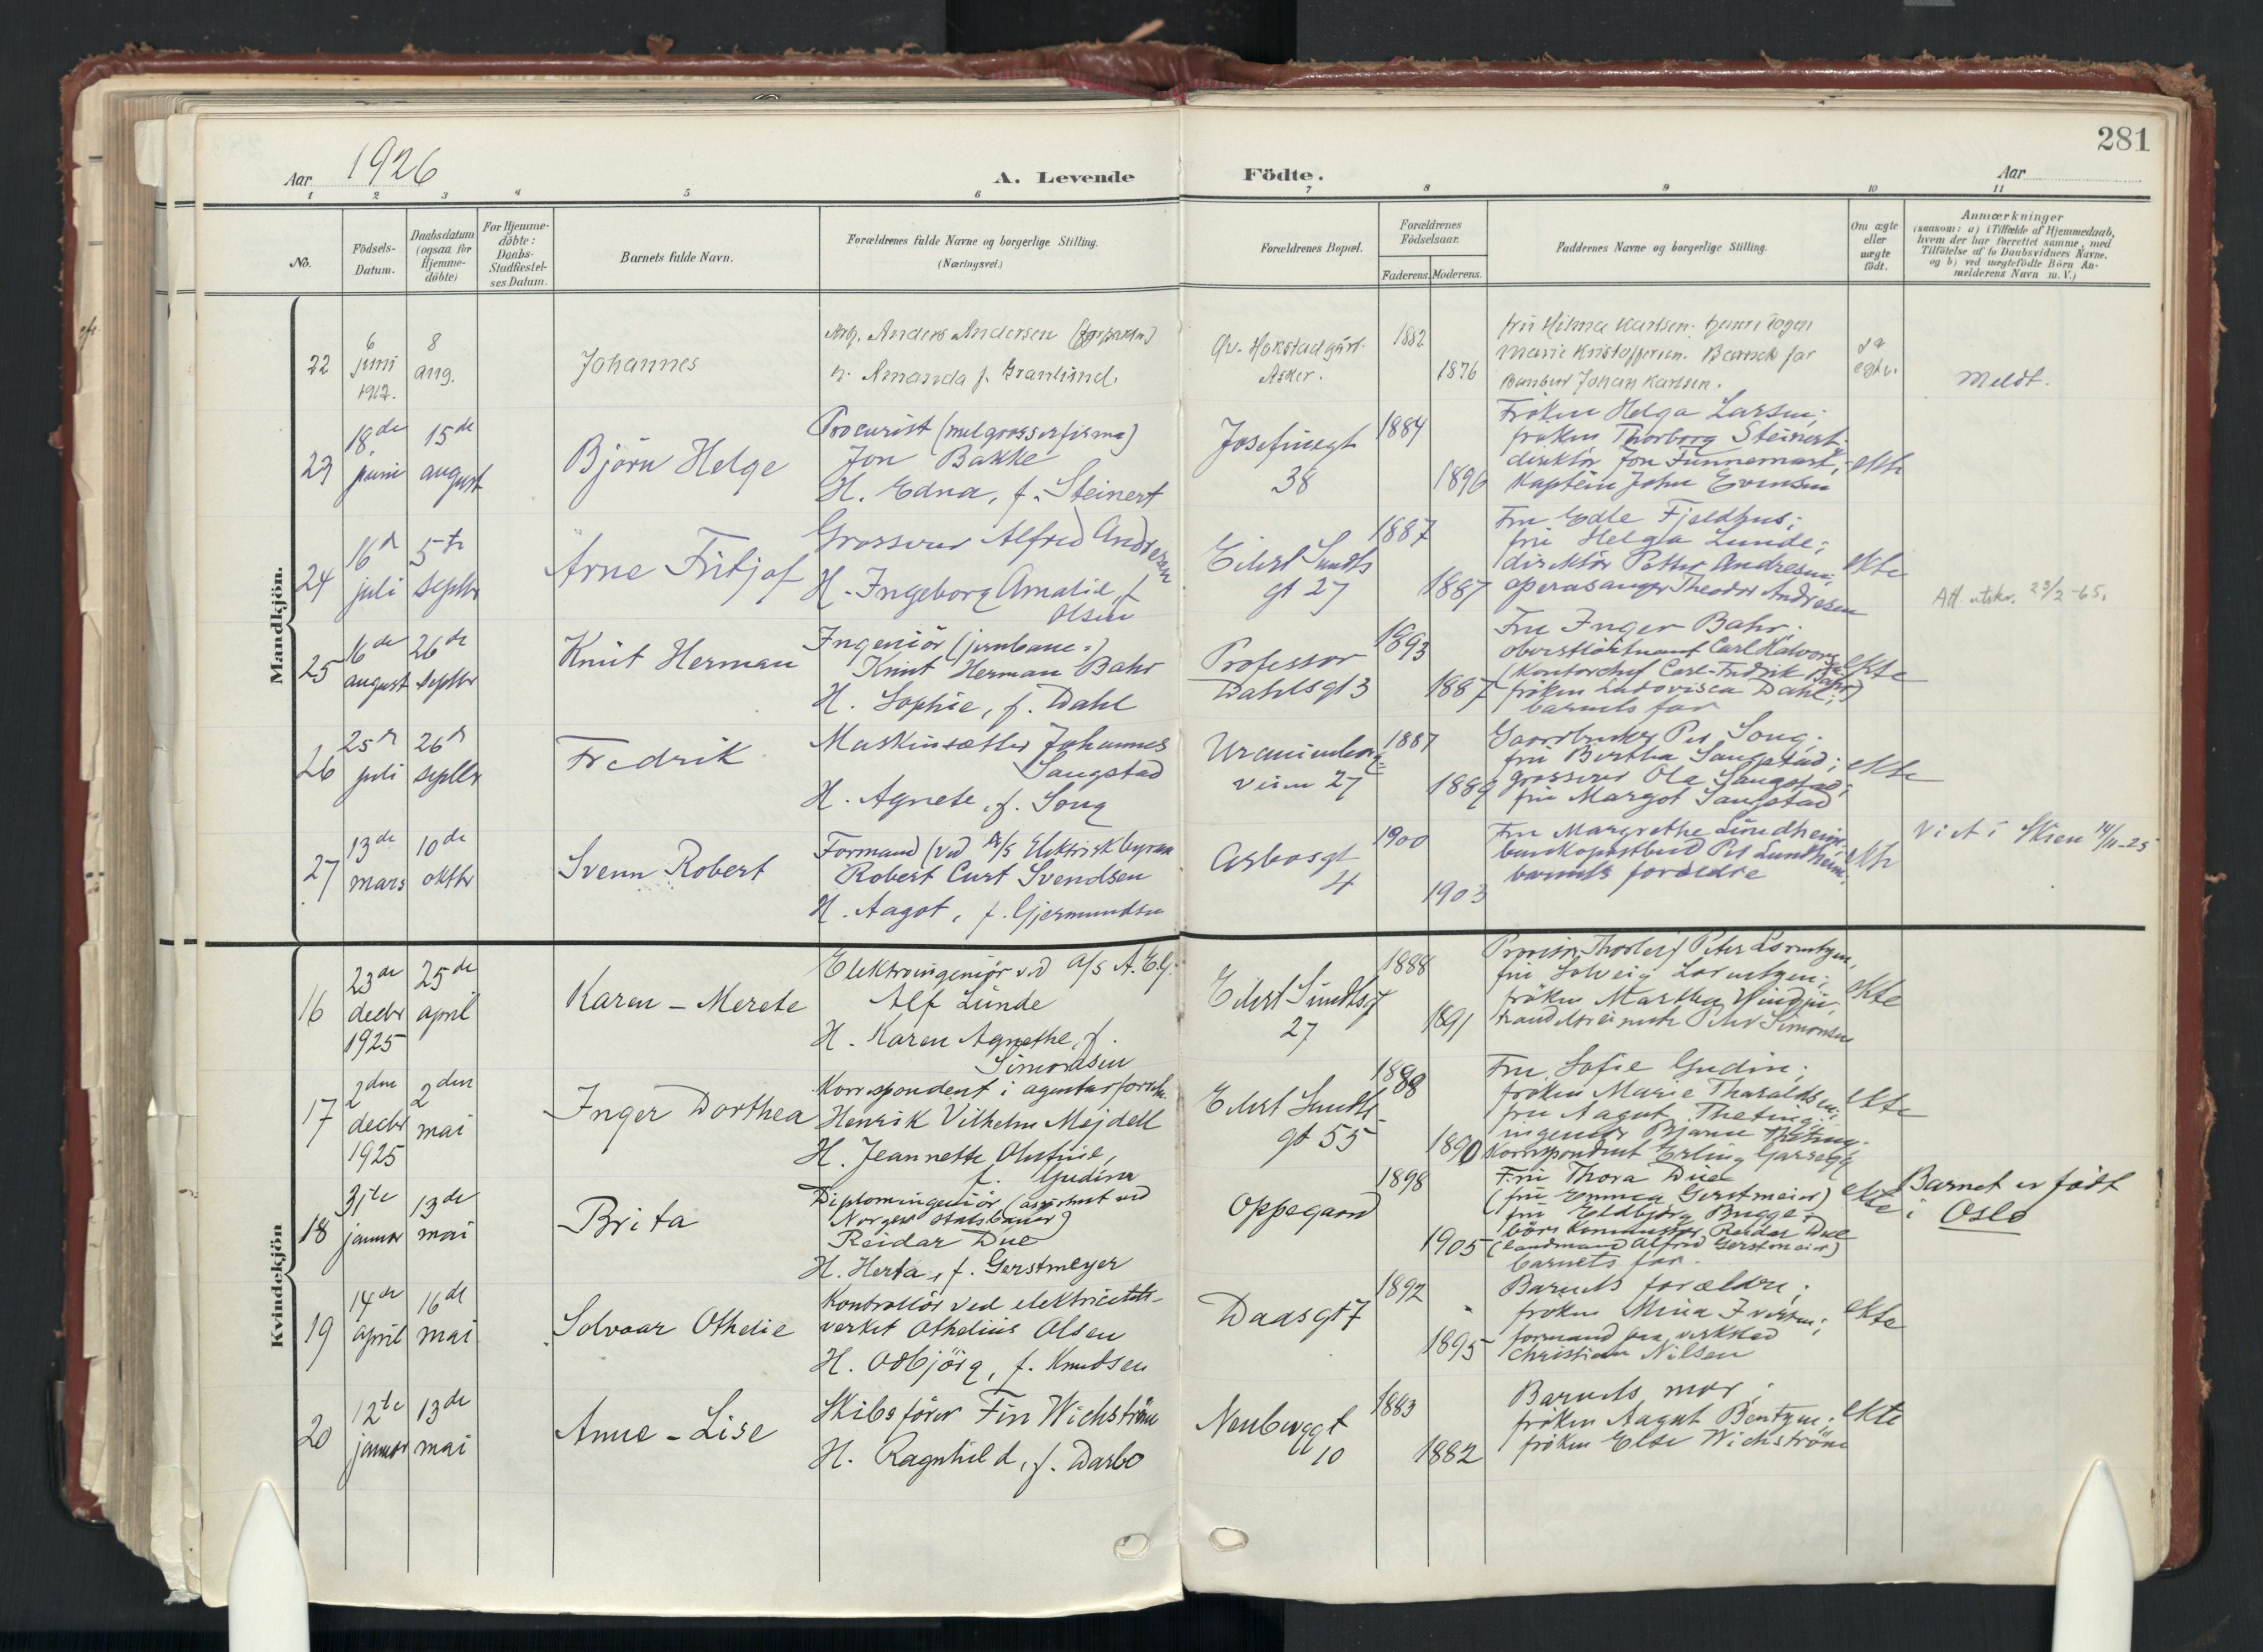 281
Aar 1926
A. Levende
Födte.
Aar
1 2 3 4 5 6 7 8 9 10 11
No.
Födsels-
Datum.
Daabsdatum
(ogsaa for
Hjemme-
döbte)
For Hjemme-
döbte:
Daabs-
Stadfæstel-
ses Datum.
Barnets fulde Navn.
Forældrenes fulde Navne og borgerlige Stilling.
(Næringsvei.)
Forældrenes Bopæl.
Forældrenes
Födselsaar.
Faderens. Moderens.
Faddernes Navne og borgerlige Stilling.
Om ægte
eller
uægte
födt.
Anmærkninger
(saasom: a) i Tilfælde af Hjemmedaab,
hvem der har forrettet samme, med
Tilföielse af to Daabsvidners Navne,
og b) ved uægtefödte Börn An-
melderens Navn m. V.)
Mandkjön.
22
6
juni
1912.
8
aug.
Johannes
Arb. Anders Andersen
h. Amanda f. Granlund.
Gv. Hokstad
Asker.
1882
1876
fru Hilma Karlsen.
Marie Kristoffersen. Barnets far
Johan Karlsen.
Meldt.
23
18de
juni
15de
august
Björn Helge
Procurist (melgrosserfirma)
Jon Bakke
H. Edna, f. Steinert
Josefinegt
38
1884
1896
Fröken Helga Larsen;
fröken Thorborg Steinert;
direktör Jon Funnemark;
Kaptein John Evensen
ekte
24
16de
juli
5te
septbr
Arne Fritjof
Grosserer Alfred Andresen
H. Ingeborg Amalie, f.
Olsen
Eilert Sundts
gt 27
1887
1887
Fru Edle Fjeldhus;
fru Helga Lunde;
direktör Petter Andresen;
operasanger Theodor Andresen
ekte
Att. utskr. 23/2-65.
25
16de
august
26de
septbr
Knut Herman
Ingeniör (jernbane-)
Knut Herman Bahr
H. Sophie, f. Dahl
Professor
Dahlsgt 3
1893
1887
Fru Inger Bahr;
oberstlöitnant Carl
(Kontorchef Carl-Fredrik Bahr)
fröken Ludovisca Dahl;
barnets far
ekte
26
25de
juli
26de
septbr
Fredrik
Maskinsætter Johannes
Saugstad
H. Agnete, f. Song
Uranienborg-
veien 27
1887
1889
Gaardbruker Per Song;
fru Bertha Saugstad;
grosserer Ole Saugstad;
fru Margot Saugstad
ekte
27
13de
mars
10de
oktbr
Svenn Robert
Formand (ved A/S Elektrisk byraa
Robert Curt Svendsen
H. Aagot, f. Gjermundsen
Arbosgt
4
1900
1903
Fru Margrethe Lundheim
Per Lundheim;
barnets forældre
ekte
Viet i Skien 14/11-25
Kvindekjön
16
23de
decbr
1925
25de
april
Karen-Merete
Elektroingeniör ved A/S A.E.G.
Alf Lunde
H. Karen Agnethe, f.
Simonsen
Eilert Sundtsgt
27
1888
1891
Provisor Thorleif Peter Lorentzen;
fru Solveig Lorentzen;
fröken Marthy Windju;
handelsreisende Peter Simonsen
ekte
17
2den
decbr
1925
2den
mai
Inger Dorthea
Korrespondent i agenturforretn.
Henrik Vilhelm Mejdell
H. Jeannette Olufine,
f. Gudim
Eilert Sundts
gt 55
1888
1890
Fru Sofie Gudim;
fröken Marie Tharaldsen;
fru Aagot Theting;
ingeniör Bjarne Theting;
Korrespondent Erling Garsegg
ekte
18
31te
januar
13de
mai
Brita
Diplomingeniör (assistent ved
Norges statsbaner)
Reidar Due
H. Herta, f. Gerstmeyer
Oppegaard
1898
1905
Fru Thora Due
(fru Emma Gerstmeier)
fru Eldbjörg Brugge;
börskommissær Reidar Due
(landmand Alfred Gerstmeier)
barnets far.
ekte
Barnet er födt
i Oslo
19
14de
april
16de
mai
Solvaar Othelie
Kontrollör ved elektricitets-
verket Othelius Olsen
H. Odbjörg, f. Knudsen
Daasgt 7
1892
1895
Barnets forældre;
fröken Mina Iversen;
formand paa verksted
Christian Nilsen
ekte
20
12te
januar
13de
mai
Anne-Lise
Skibsförer Fin Wichström
H. Ragnhild, f. Darbo
Neuberggt
10
1883
1882
Barnets mor;
fröken Aagot Bentzen;
fröken Else Wichström
ekte